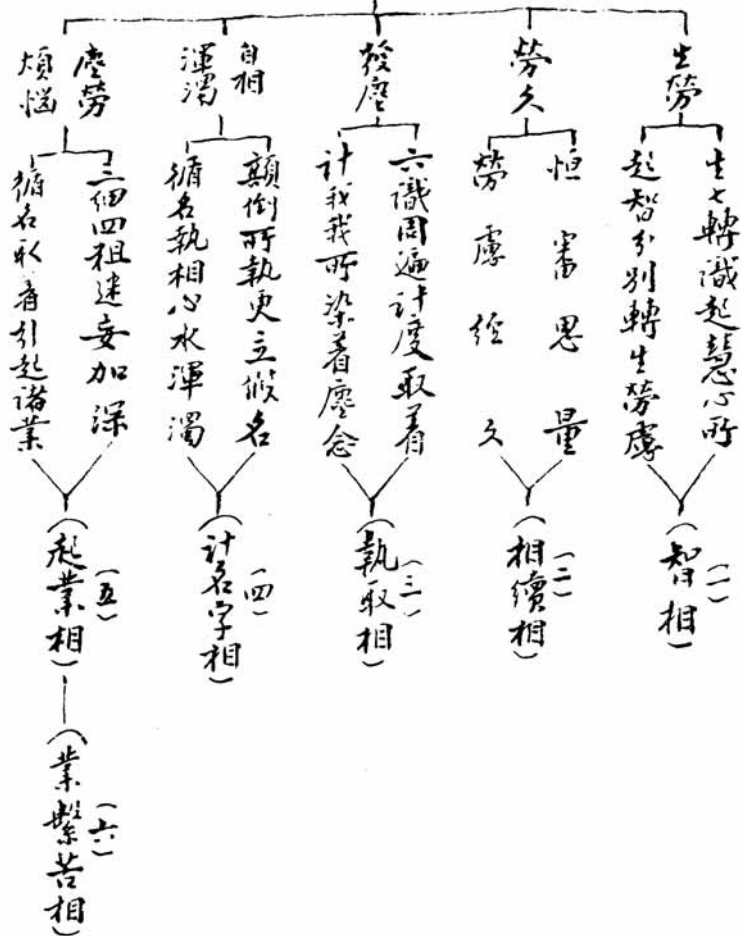 生勞
生七轉識起慧心所
起智分別轉生勞慮
（一）
（智相）
勞久
恒審思量
勞慮經久
（二）
（相續相）
發塵
六識周遍計度取着
計我我所染着塵念
（三）
（執取相）
自相
渾濁
顛倒所執更立假名
循名執相心水渾濁
（四）
（計名字相）
塵勞
煩惱
三細四粗迷妄加深
循名取着引起諸業
（五）
（起業相）
（六）
（業繫苦相）